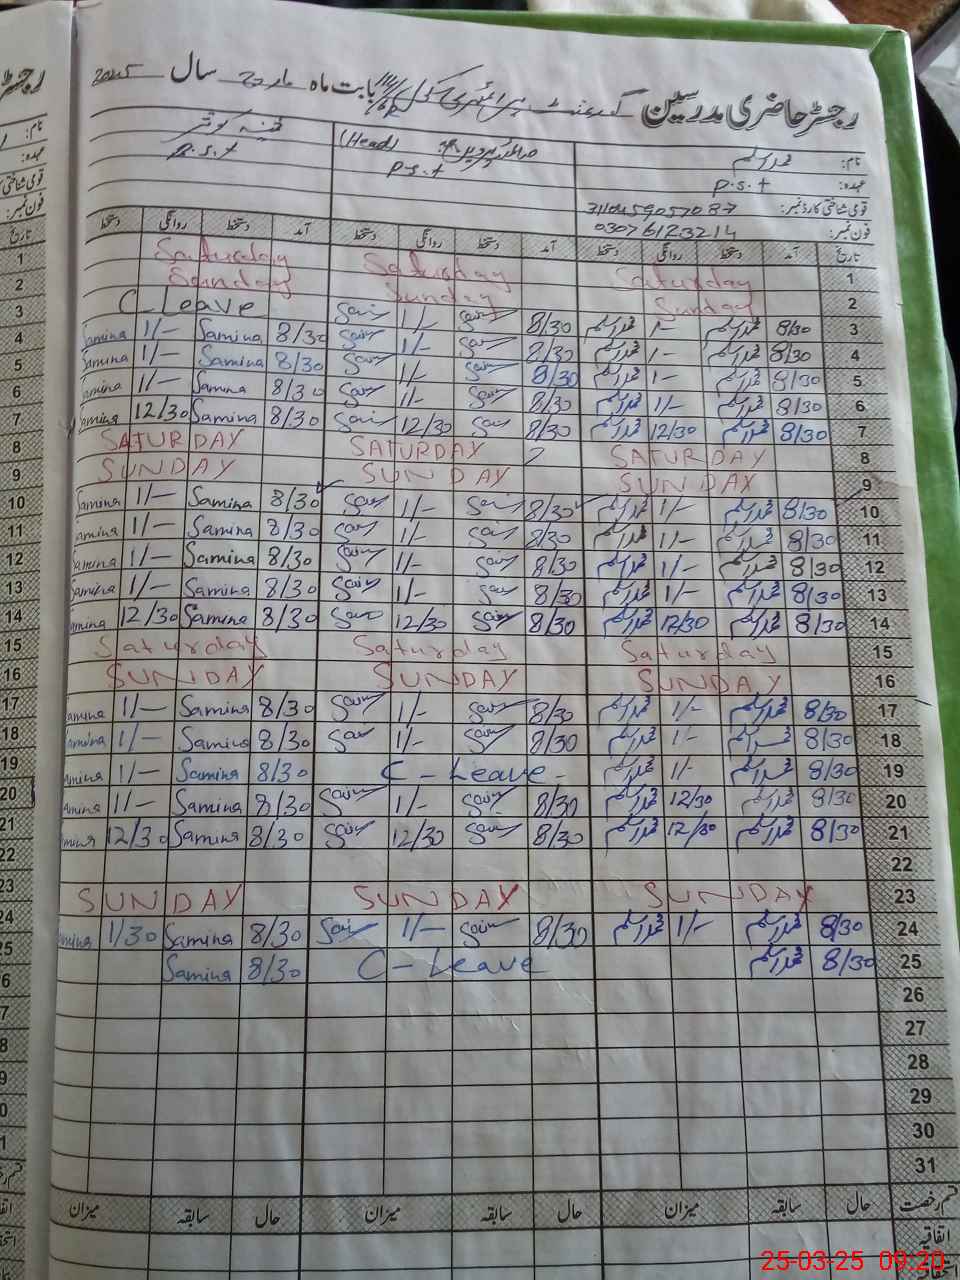 رجسٹر حاضری مدرسین گورنمنٹ پرائمری سکول بابت ماہ مارچ سال 2025
نام: محمد اسلم (Head)
عہدہ: P.S.T P.S.T P.S.T
قومی شناختی کارڈ نمبر:
فون نمبر: 03076123214
تاریخ آمد دستخط روانگی دستخط آمد دستخط روانگی دستخط آمد دستخط روانگی دستخط
1 Saturday Saturday Saturday 1
2 Sunday Sunday Sunday 2
3 C-Leave 1/- 8/30 محمد اسلم 1- محمد اسلم 8/30 3
4 Samina 1/- Samina 8/30 1/- 8/30 محمد اسلم 1- محمد اسلم 8/30 4
5 Samina 1/- Samina 8/30 1/- 8/30 محمد اسلم 1- محمد اسلم 8/30 5
6 Samina 1/- Samina 8/30 1/- 8/30 محمد اسلم 1/- محمد اسلم 8/30 6
7 Samina 12/30 Samina 8/30 12/30 8/30 محمد اسلم 12/30 محمد اسلم 8/30 7
8 SATURDAY SATURDAY SATURDAY 8
9 SUNDAY SUNDAY SUNDAY 9
10 Samina 1/- Samina 8/30 1/- 8/30 محمد اسلم 1/- محمد اسلم 8/30 10
11 Samina 1/- Samina 8/30 1/- 8/30 محمد اسلم 1/- محمد اسلم 8/30 11
12 Samina 1/- Samina 8/30 1/- 8/30 محمد اسلم 1/- محمد اسلم 8/30 12
13 Samina 1/- Samina 8/30 1/- 8/30 محمد اسلم 1/- محمد اسلم 8/30 13
14 Samina 12/30 Samina 8/30 12/30 8/30 محمد اسلم 12/30 محمد اسلم 8/30 14
15 Saturday Saturday Saturday 15
16 SUNDAY SUNDAY SUNDAY 16
17 Samina 1/- Samina 8/30 1/- 8/30 محمد اسلم 1/- محمد اسلم 8/30 17
18 Samina 1/- Samina 8/30 1/- 8/30 محمد اسلم 1/- محمد اسلم 8/30 18
19 Samina 1/- Samina 8/30 C-Leave- محمد اسلم 1/- محمد اسلم 8/30 19
20 Samina 1/- Samina 8/30 1/- 8/30 محمد اسلم 12/30 محمد اسلم 8/30 20
21 Samina 12/30 Samina 8/30 12/30 8/30 محمد اسلم 12/30 محمد اسلم 8/30 21
22 22
23 SUNDAY SUNDAY SUNDAY 23
24 Samina 1/30 Samina 8/30 1/- 8/30 محمد اسلم 1/- محمد اسلم 8/30 24
25 Samina 8/30 C-Leave محمد اسلم 8/30 25
26
27
28
29
30
31
قسم رخصت حال سابقہ میزان حال سابقہ میزان حال سابقہ میزان
اتفاقیہ
استحقاقیہ
25-03-25 09:20